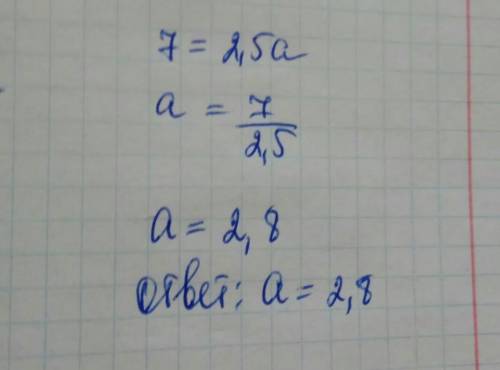 7 = 2,5a
a = 7/2,5
a = 2,8
ответ: a = 2,8